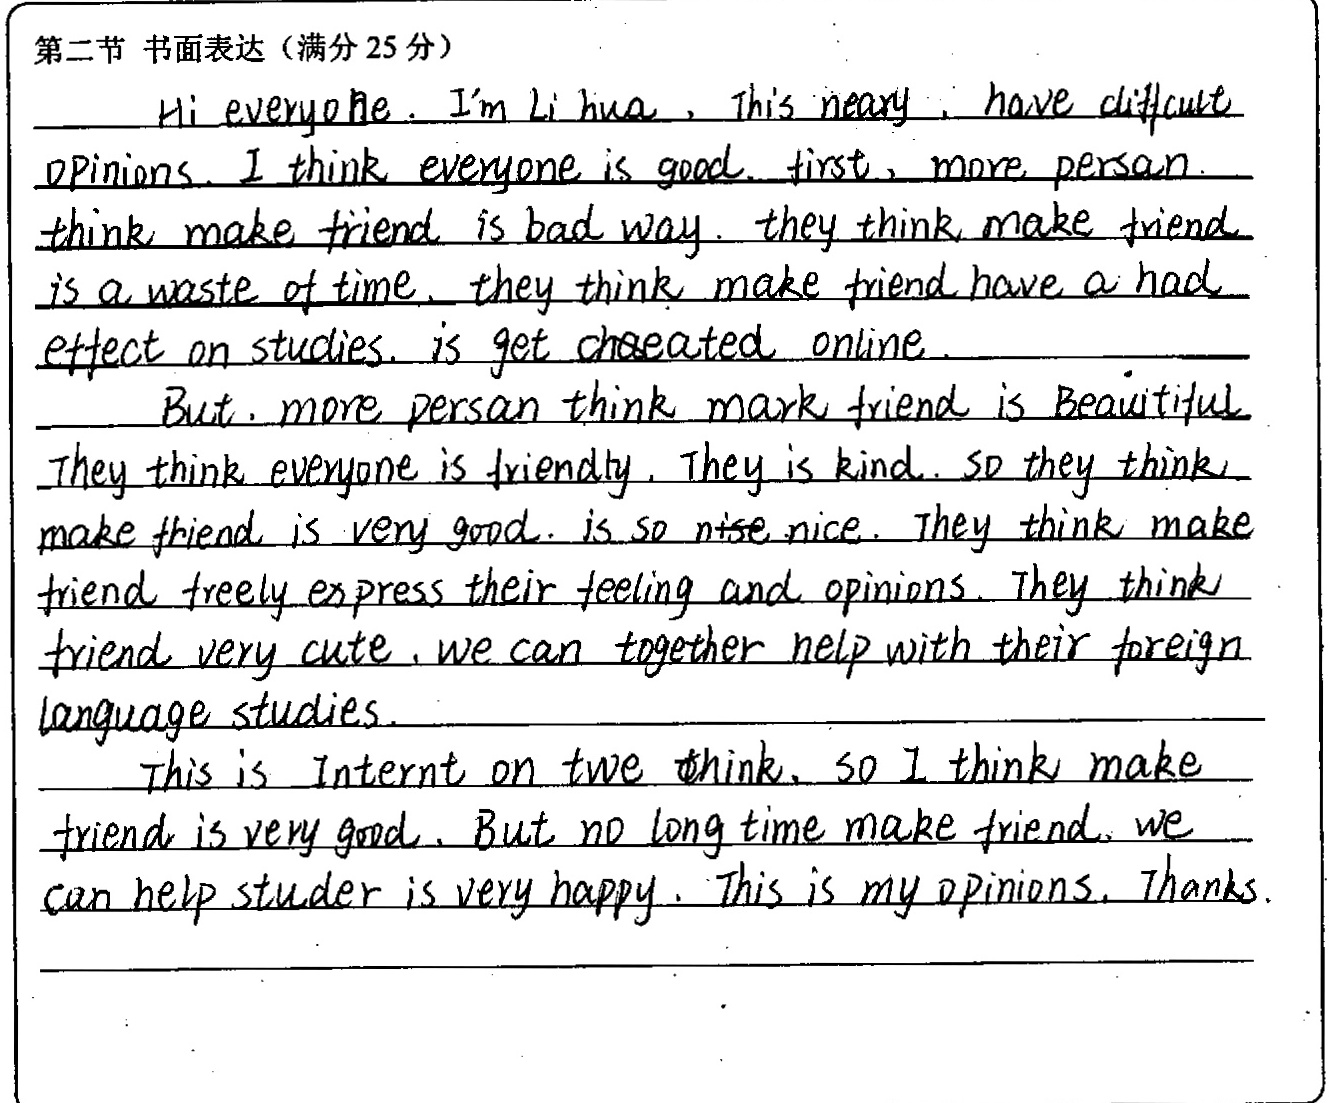 第二节 书面表达（满分 25 分）
Hi everyone. I'm Li hua, This neary, have difficult
opinions. I think everyone is good. first, more persan
think make friend is bad way. they think make friend
is a waste of time. they think make friend have a had
effect on studies. is get cheated online.
But. more persan think mark friend is Beauitiful
They think everyone is friendly. They is kind. so they think
make friend is very good. is so nice. They think make
friend freely express their feeling and opinions. They think
friend very cute, we can together help with their foreign
language studies.
This is Internt on twe think. so I think make
friend is very good. But no long time make friend. we
can help studer is very happy. This is my opinions. Thanks.